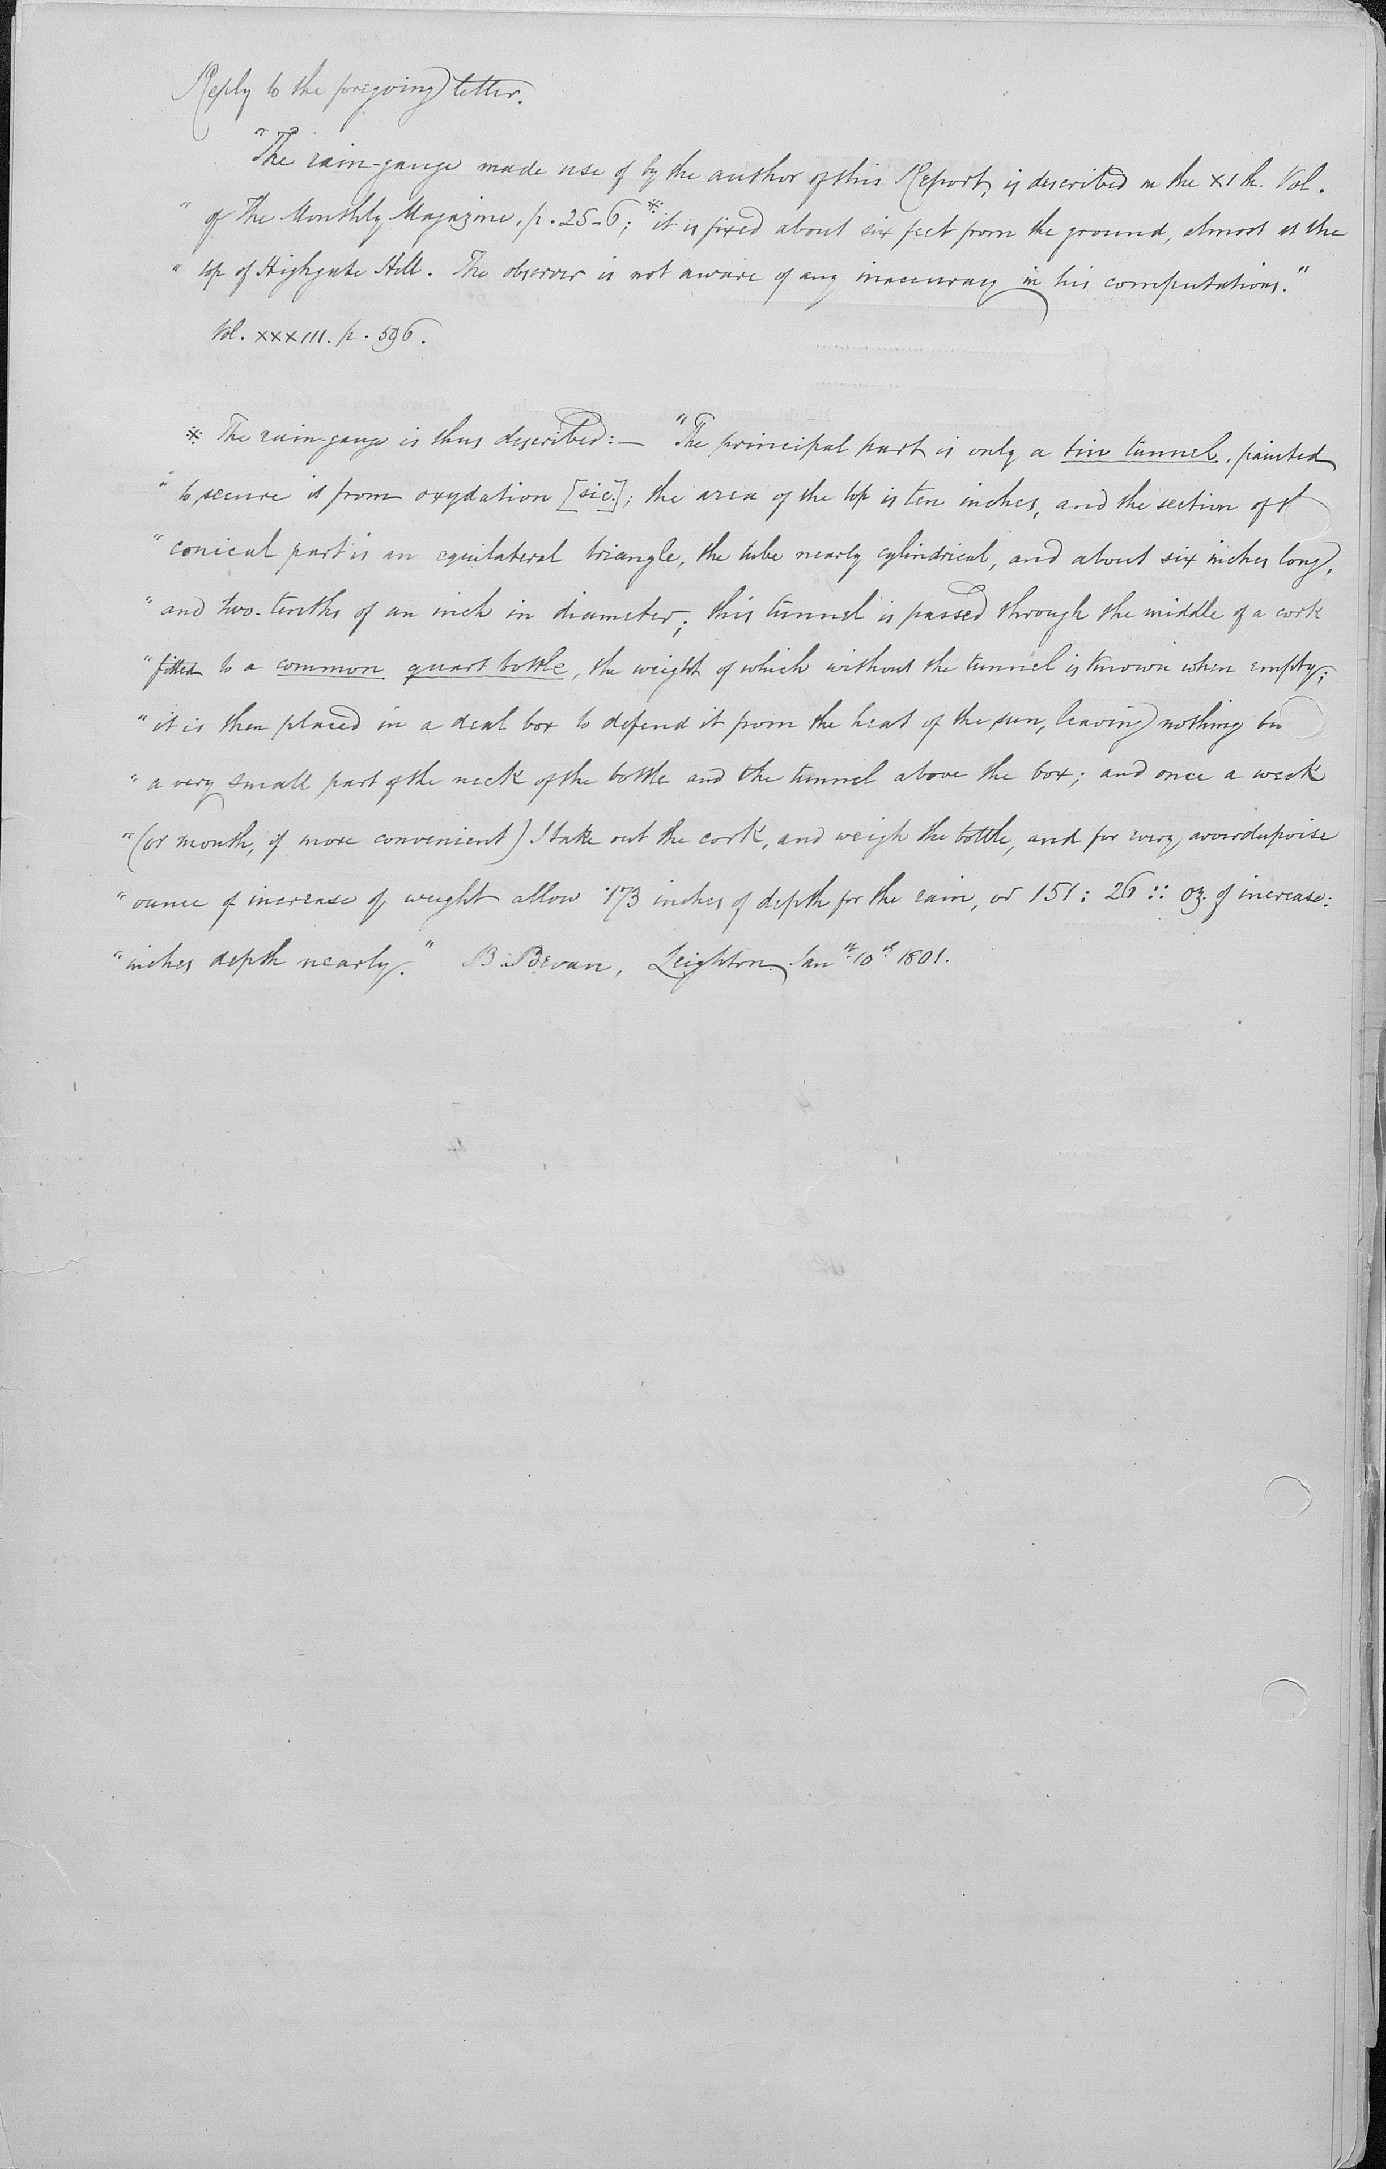 Reply to the foregoing letter.
"The rain-gauge made use of by the author of this Report, is described in the XIth. Vol.
" of The Monthly Magazine. p. 25-6; * it is fixed about six feet from the ground, almost at the
" top of Highgate Hill. The observer is not aware of any inaccuracy in his computations."
Vol. XXXIII. p. 596.
* The rain-gauge is thus described:— "The principal part is only a tin tunnel, painted
" to secure it from oxydation [sic]; the area of the top is ten inches, and the section of
" conical part is an equilateral triangle, the tube nearly cylindrical, and about six inches long,
" and two-tenths of an inch in diameter; this tunnel is passed through the middle of a cork
" fitted to a common quart bottle, the weight of which without the tunnel is known when empty;
" it is then placed in a deal box to defend it from the heat of the sun, leaving nothing bu
" a very small part of the neck of the bottle and the tunnel above the box; and once a week
" (or month, if more convenient) I take out the cork, and weigh the bottle, and for every avoirdupoise
" ounce of increase of weight allow ·173 inches of depth for the rain, or 151 : 26 :: oz. of increase:
" inches depth nearly." B. Bevan, Leighton Jany. 10th 1801.